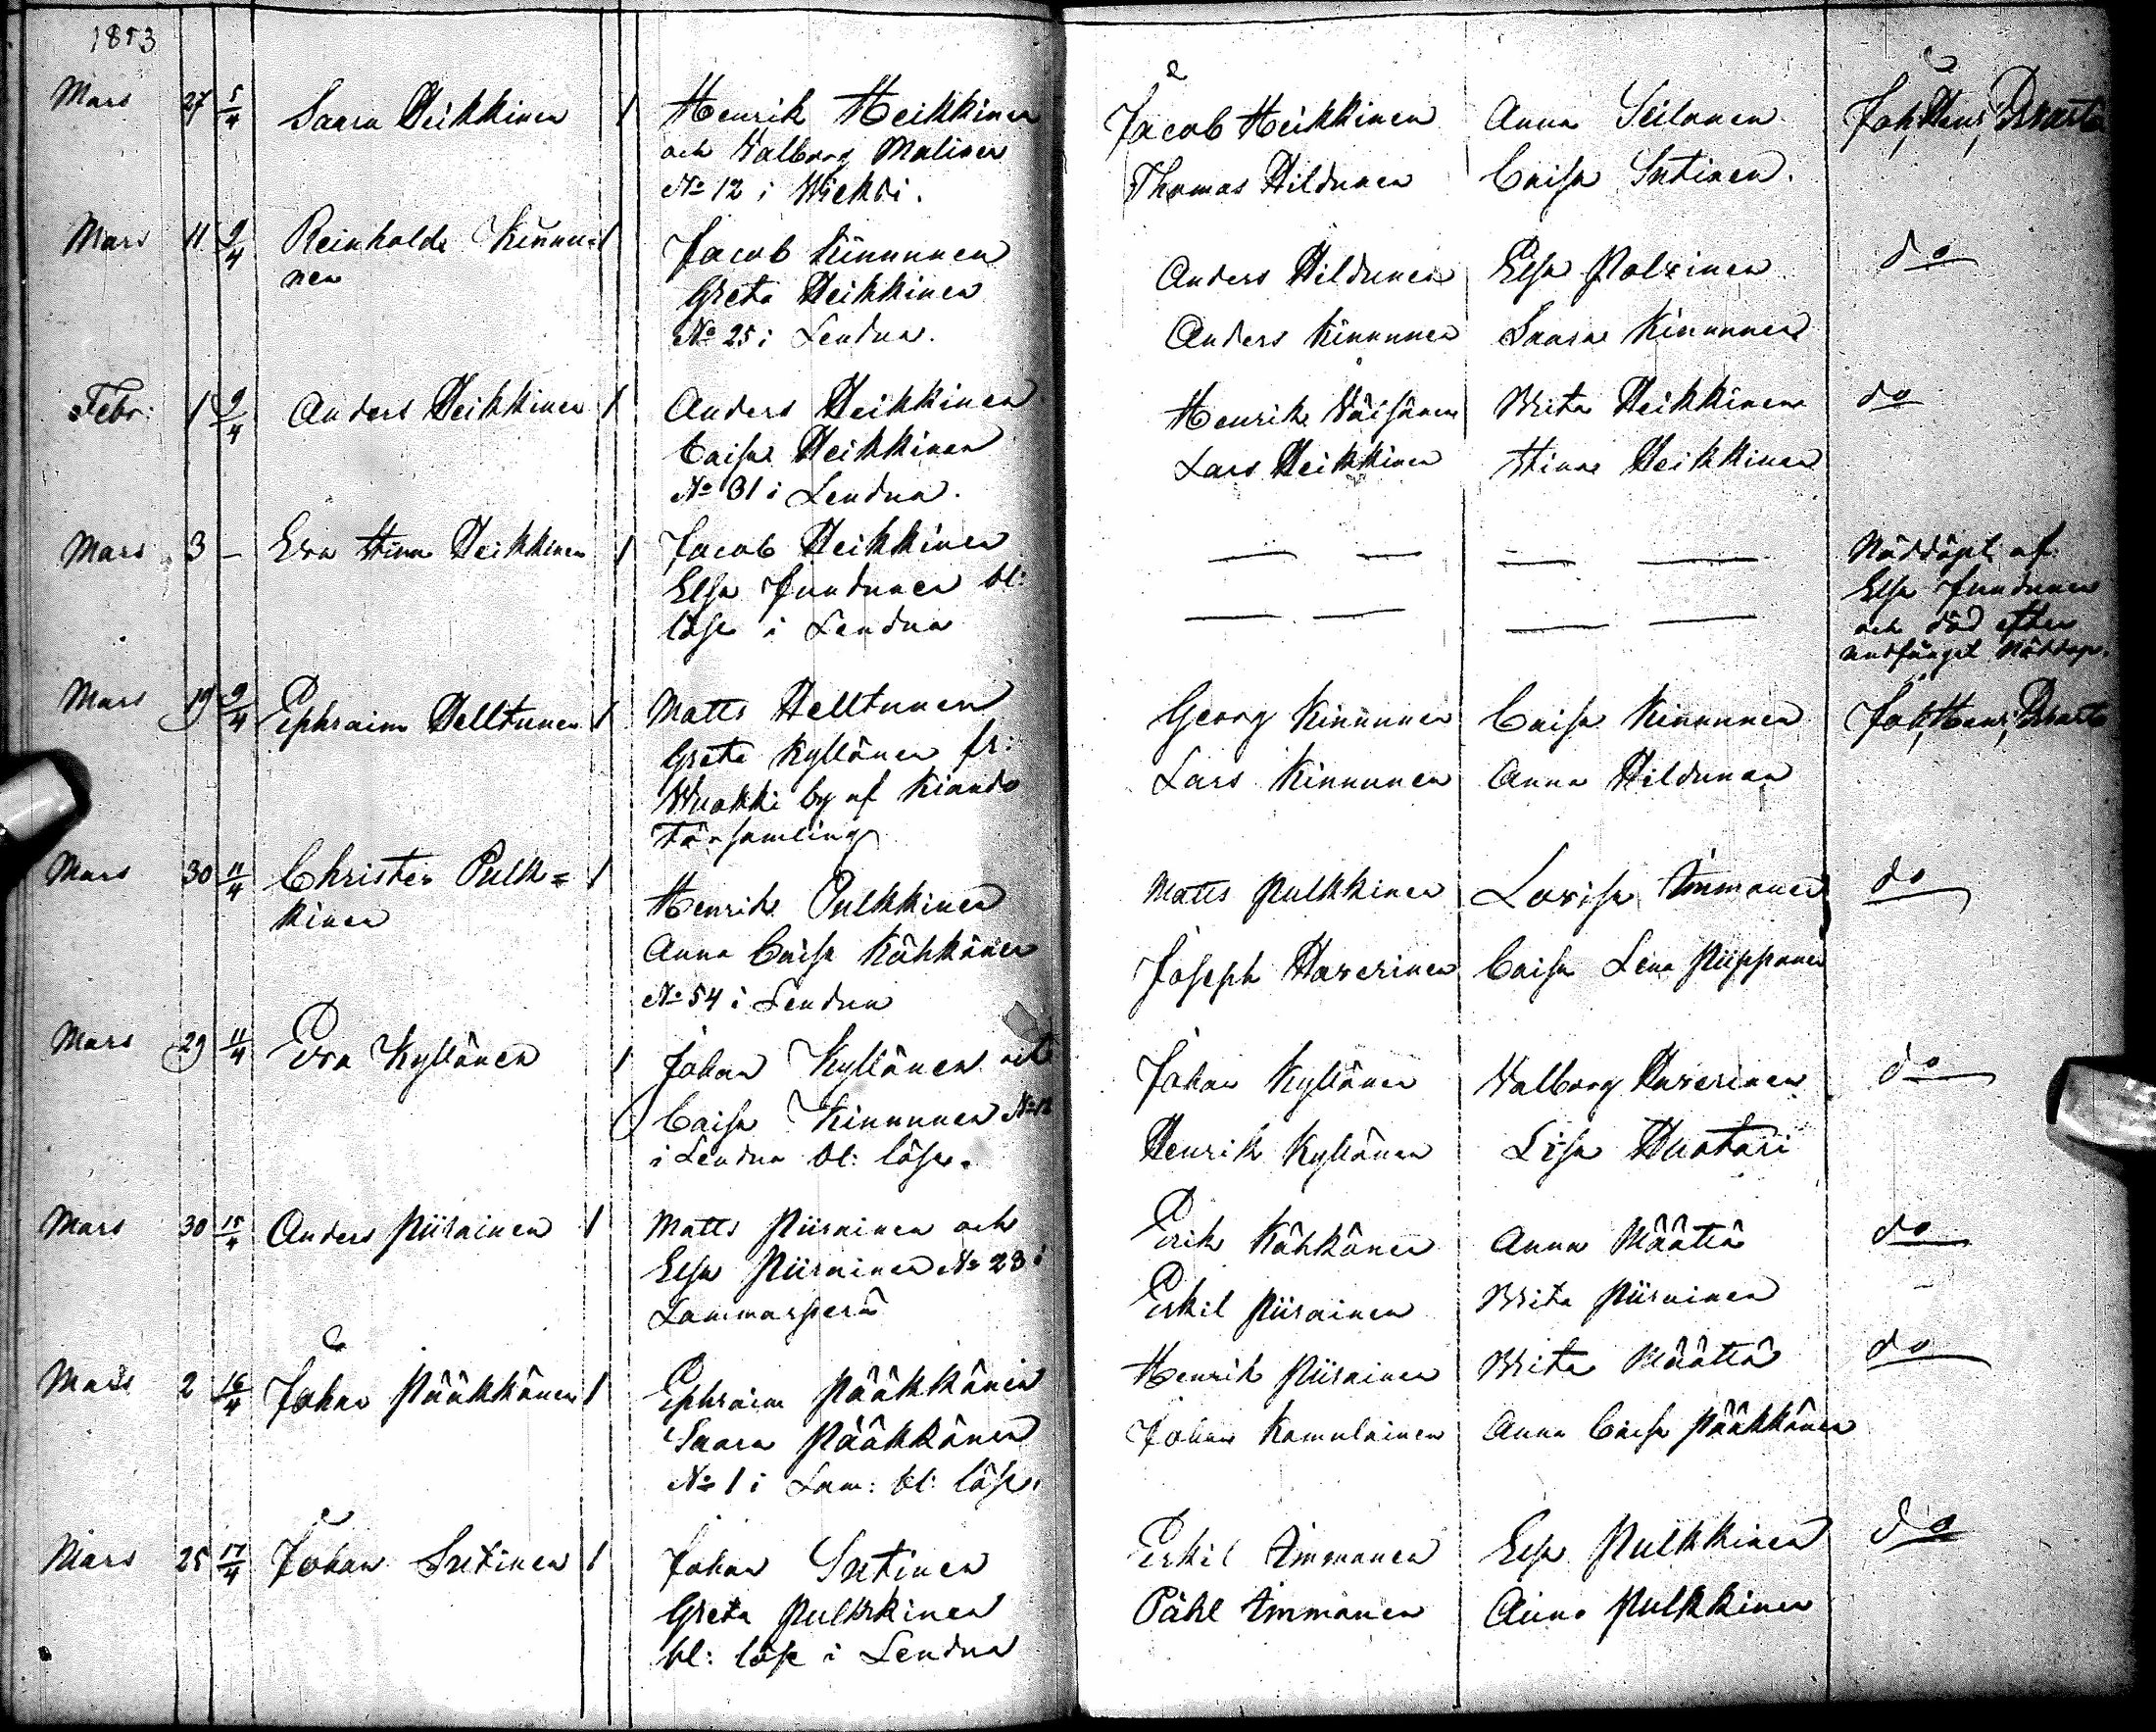 1853
Mars 27 5/4 Saara Heikkinen 1 Henrik Heikkinen Jacob Heikkinen Anna Seilonen Joh. Henr.
och Walborg Malinen Thomas Hildunen Caisa Sutinen.
No 12 i Wieksi.
Mars 11 9/4 Reinholds Kinnu= 1 Jacob Kinnunen Anders Hildunen Elsa Polvinen do
nen Greta Heikkinen
No 25 i Lendua. Anders Kinnunen Saara Kinnunen
Febr: 1 9/4 Anders Heikkinen 1 Anders Heikkinen Henrik Väisänen Brita Heikkinen do
Caisa Heikkinen Lars Heikkinen Stina Heikkinen
No 31 i Lendua.
Mars 3 – Eva Stina Heikkinen 1 Jacob Heikkinen — — — — Nöddöpt af
Elsa Jundunen bl: Elsa Jundunen
löse i Lendua — — — — och död efter
undfånget Nöddop.
Mars 19 9/4 Ephraim Helttunen 1 Matts Helttunen Georg Kinnunen Caisa Kinnunen Joh. Henr.
Greta Kyllönen fr: Lars Kinnunen Anna Hildunen
Wuokki by af Kiando
Församling
Mars 30 11/4 Christer Pulk= 1 Henrik Pulkkinen Matts Pulkkinen Lovisa Immonen do
kinen Anna Caisa Kähkönen Joseph Haverinen Caisa Lena Piipponen
No 54 i Lendua
Mars 29 11/4 Eva Kyllönen 1 Johan Kyllönen och Johan Kyllönen Walborg Haverinen do
Caisa Kinnunen No 12 Henrik Kyllönen Lisa Huotari
i Lendua bl: löse.
Mars 30 15/4 Anders Piirainen 1 Matts Piirainen och Erik Kähkönen Anna Määttä do
Elsa Piirainen No 23 i Eskil Piirainen Brita Piirainen
Lammasperä
Mars 2 16/4 Johan Pääkkönen 1 Ephraim Pääkkönen Henrik Piirainen Brita Määttä do
Saara Pääkkönen Johan Kamulainen Anna Caisa Pääkkönen
No 1 i Lam: bl: löse.
Mars 25 17/4 Johan Sutinen 1 Johan Sutinen Eskil Immonen Elsa Pulkkinen do
Greta Pulkkinen Påhl Immonen Anna Pulkkinen
bl: löse i Lendua